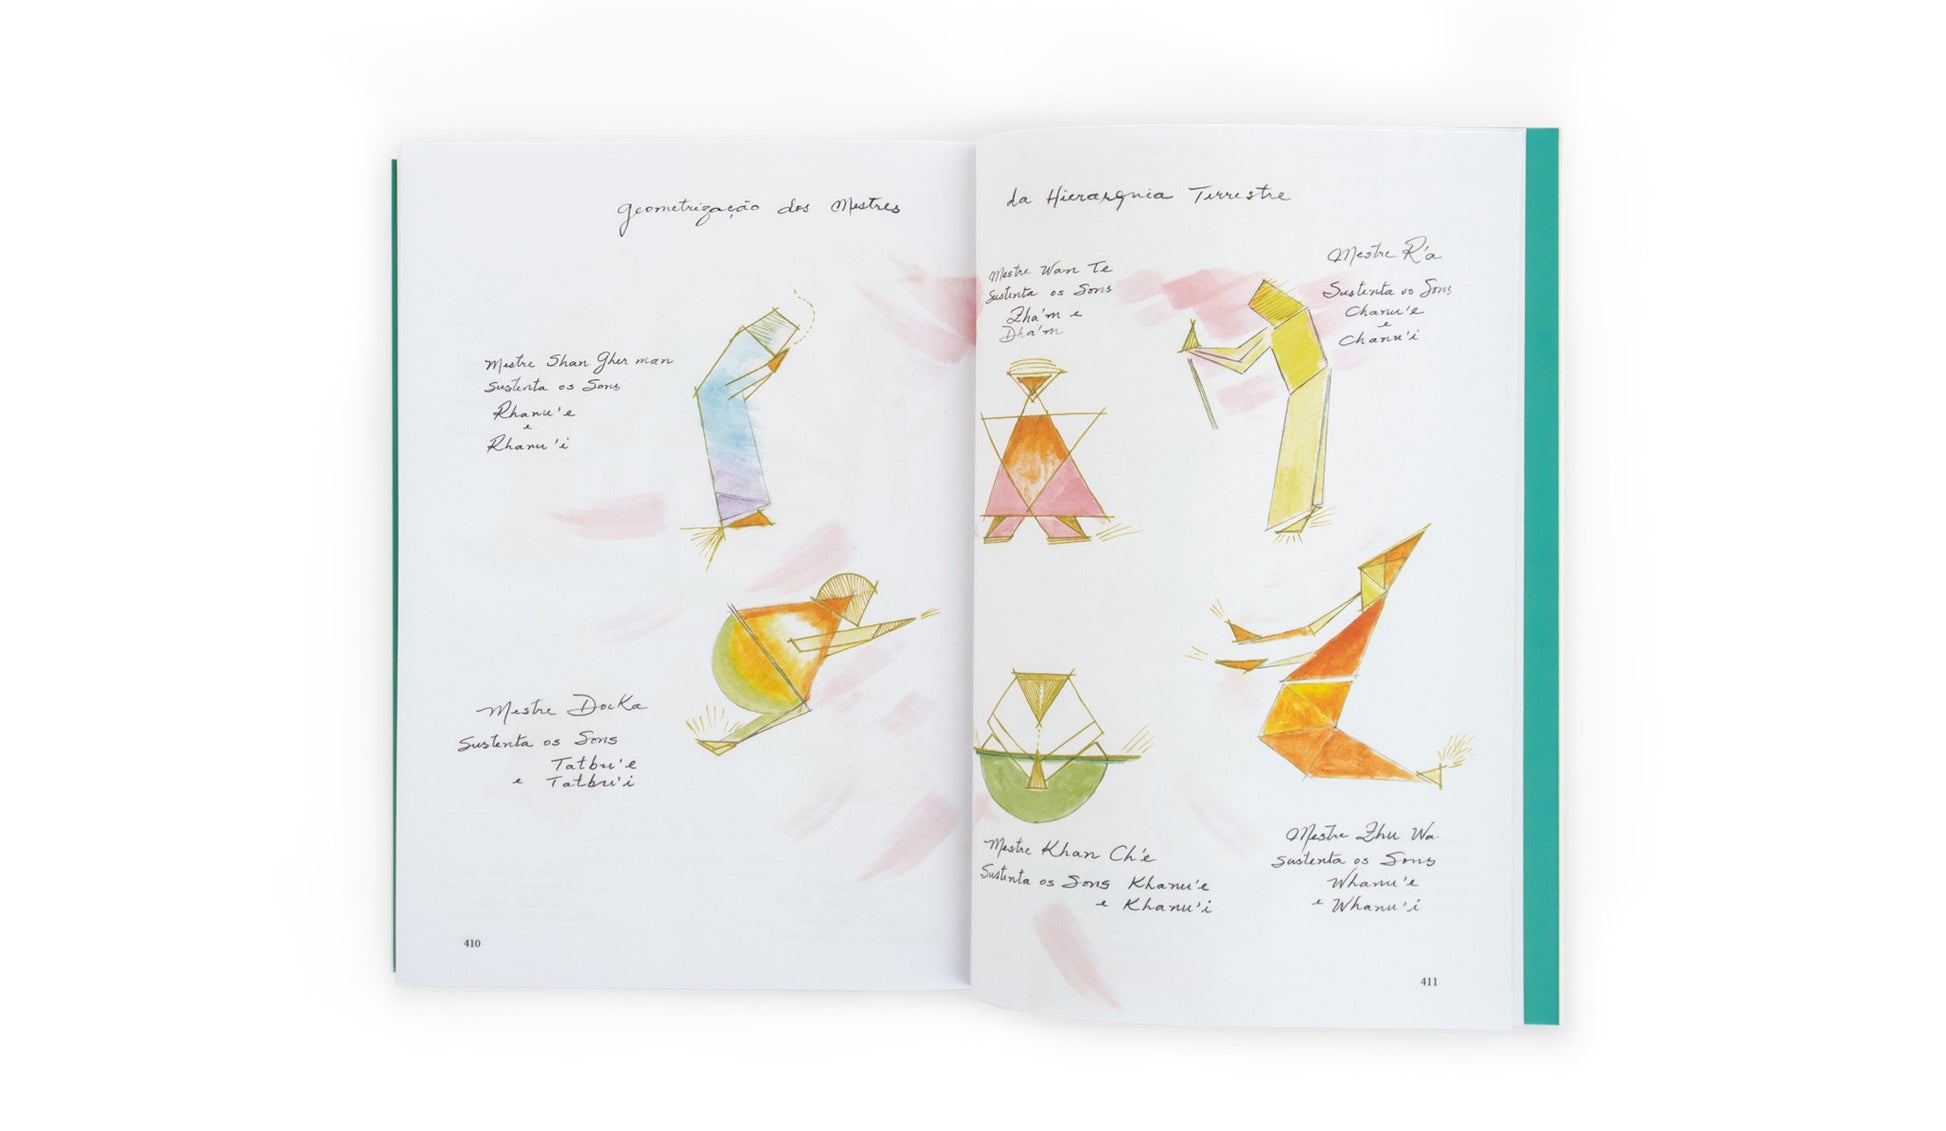 geometrização dos Mestres
Mestre Shan Gher man
Sustenta os Sons
Rhanu'e
e
Rhanu'i
Mestre DocKa
Sustenta os Sons
Tatbu'e
e Tatbu'i
410
da Hierarquia Terrestre
Mestre Wan Te
Sustenta os Sons
Zha'm e
Dha'm
Mestre R'a
Sustenta os Sons
Chanu'e
e
Chanu'i
Mestre Khan Ch'e
Sustenta os Sons Khanu'e
e Khanu'i
Mestre Zhu Wa
Sustenta os Sons
Whanu'e
e Whanu'i
411